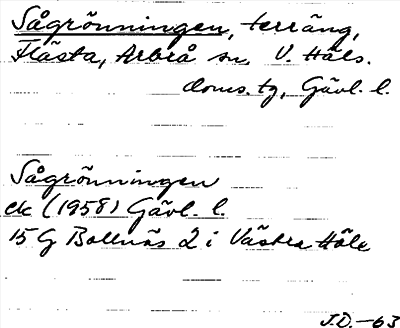 Sågrönningen, terräng,
Flästa, Arbrå sn, V. Häls.
doms. tg, Gävl. l.
Sågrönningen
ek (1958) Gävl. l.
15 G Bollnäs 2 i Västra Häls
J.D. -63